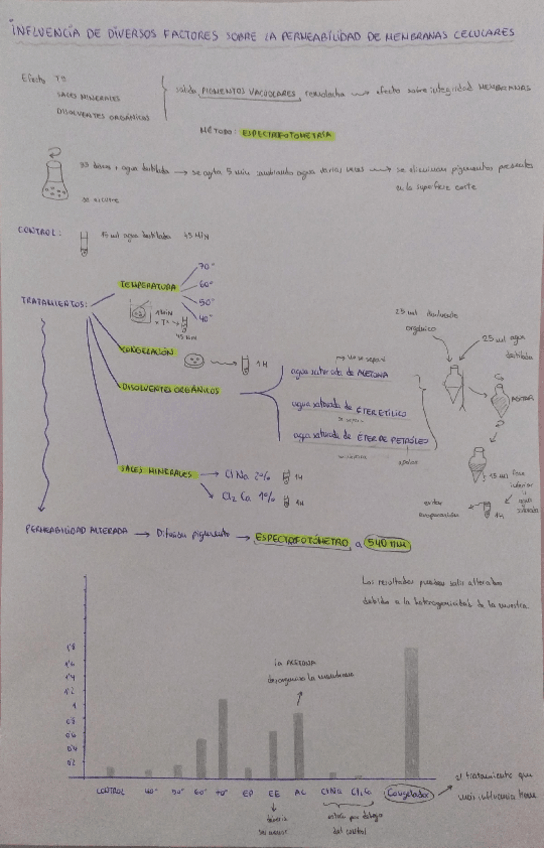 INFLUENCIA DE DIVERSOS FACTORES SOBRE LA PERMEABILIDAD DE MEMBRANAS CELULARES
Efecto Tª
SALES MINERALES
DISOLVENTES ORGÁNICOS
salida PIGMENTOS VACUOLARES remolacha → efecto sobre integridad MEMBRANAS
MÉTODO: ESPECTROFOTOMETRÍA
+ agua destilada → se agita 5 min cambiando agua varias veces → se eliminan pigmentos presentes
en la superficie corte
CONTROL:
15 ml agua destilada 45 MIN
TRATAMIENTOS:
TEMPERATURA
70°
60°
50°
40°
1 MIN
x Tª
45 min
CONGELACIÓN
1H
DISOLVENTES ORGÁNICOS
→ no se separa
agua saturada de ACETONA
agua saturada de ÉTER ETÍLICO
agua saturada de ÉTER DE PETRÓLEO
25 ml disolvente
orgánico
25 ml agua
destilada
AGITAR
15 ml fase
inferior
agua
saturada
evitar
evaporación
1H
SALES MINERALES
→ ClNa 2% 1H
→ Cl2Ca 1% 1H
PERMEABILIDAD ALTERADA → Difusión pigmento → ESPECTROFOTÓMETRO a 540 nm
Los resultados pueden salir alterados
debido a la heterogeneidad de la muestra.
1.8
1.6
1.4
1.2
1
0.8
0.6
0.4
0.2
la ACETONA
desorganiza la membrana
CONTROL 40° 50° 60° 70° EP EE AC ClNa Cl2Ca Congelador
→ el tratamiento que
más influencia tiene
debería
ser menor
están por debajo
del control